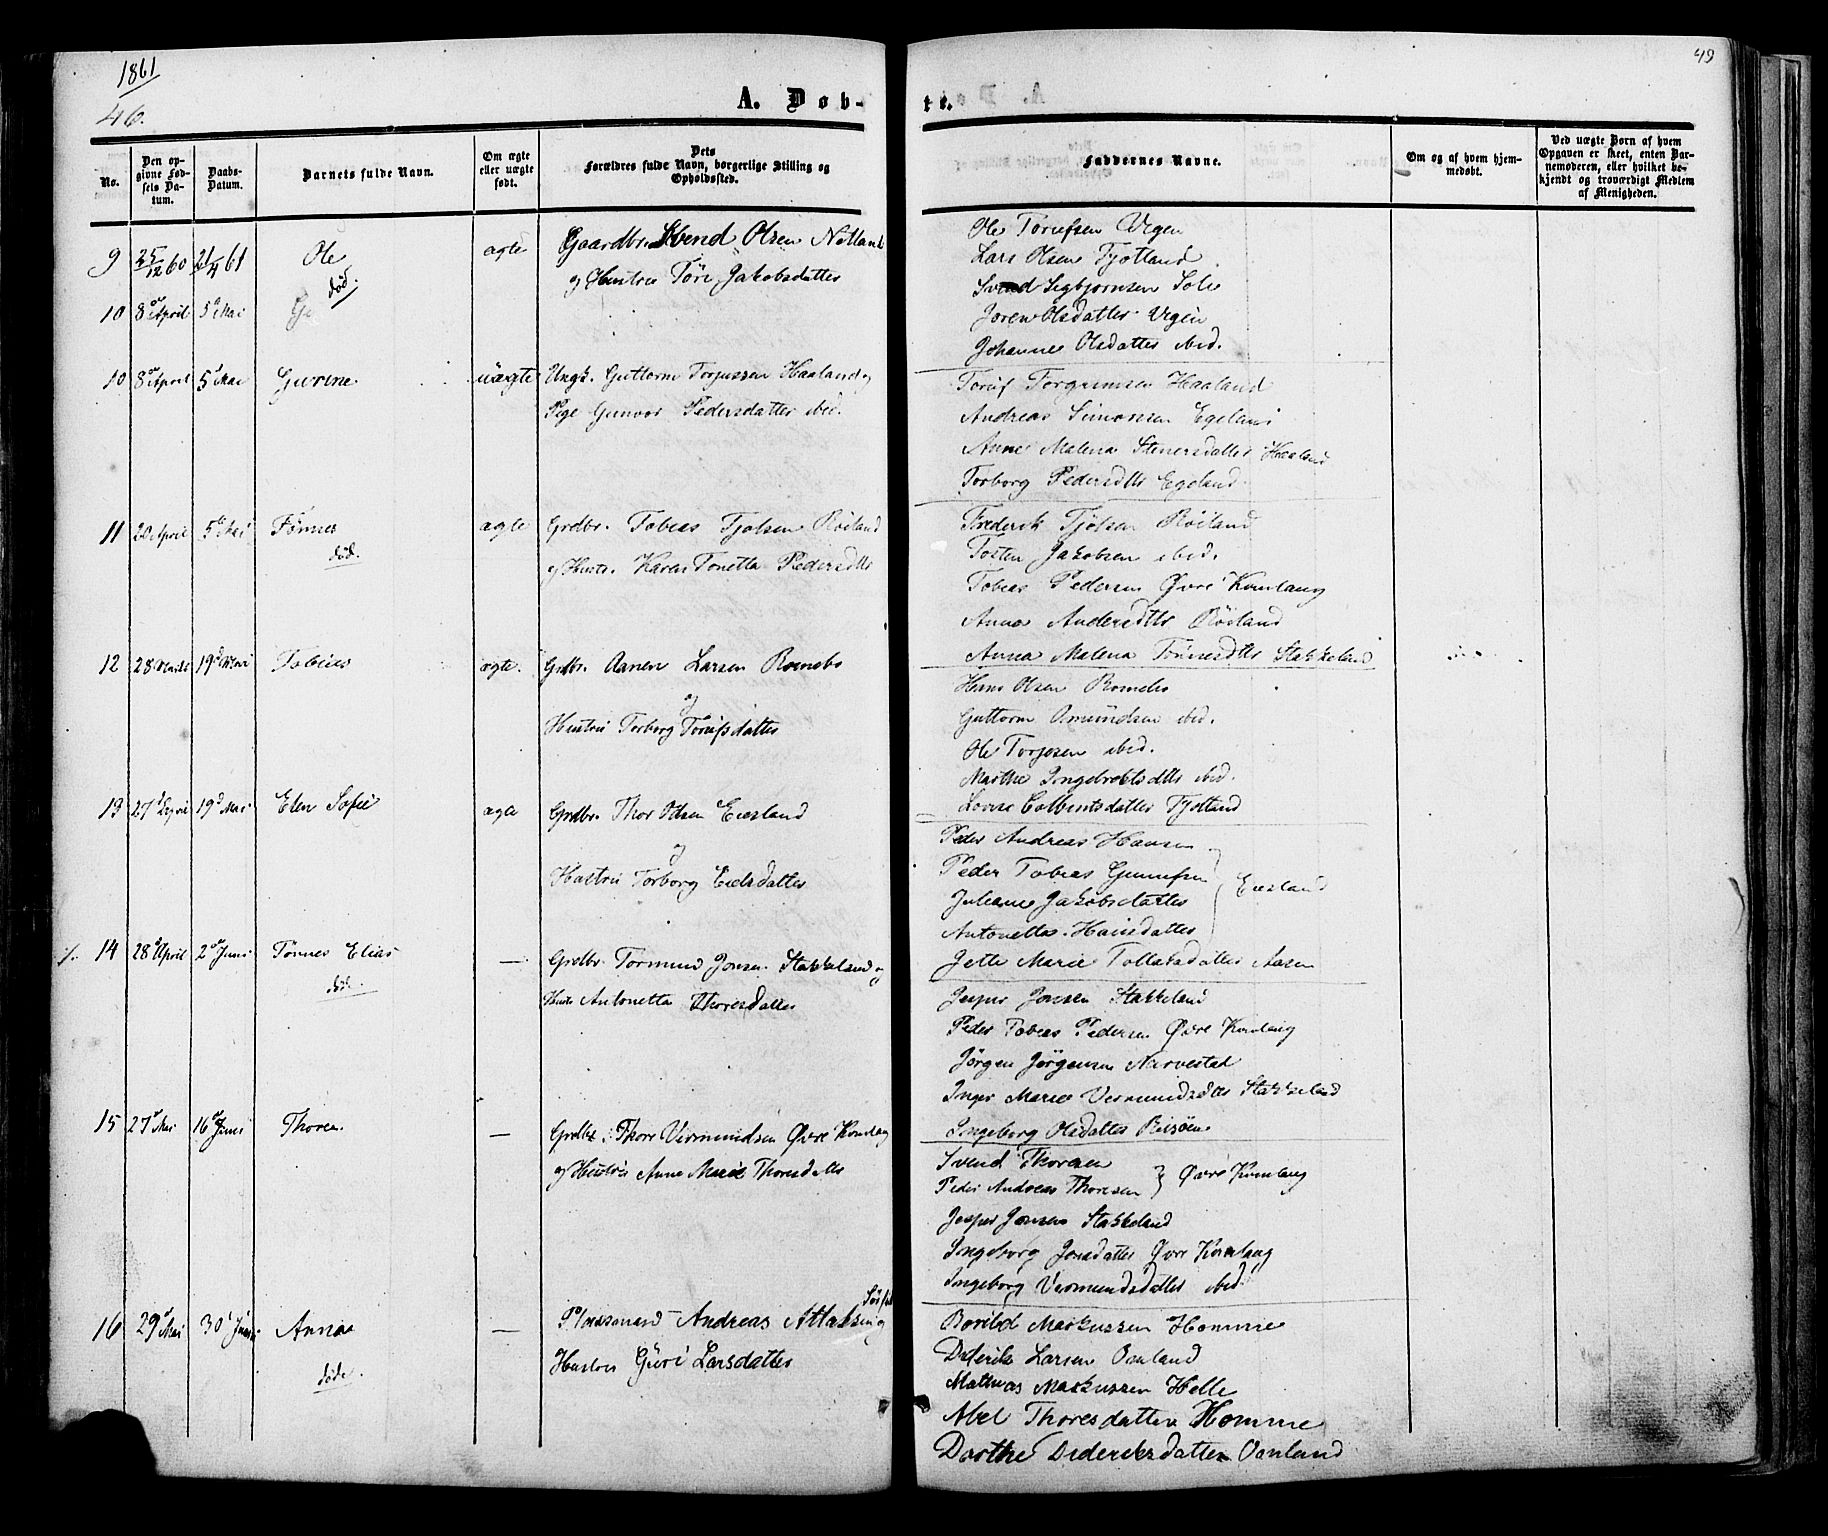 1861
46.
49
A. Døb-
te.
No.
Den op-
givne Fød-
sels Da-
tum.
Daabs-
Datum.
Barnets fulde Navn.
Om ægte
eller uægte
født.
Dets
Forældres fulde Navn, borgerlige Stilling og
Opholdssted.
Faddernes Navne.
Om og af hvem hjem-
medøbt.
Ved uægte Børn af hvem
Opgaven er skeet, enten Bar-
nemoderen, eller hvilket be-
kjendt og troværdigt Medlem
af Menigheden.
9 25/12 60 21/4 61 Ole ægte Gaardbr. Svend Olsen Netland
død.
og Hustru Tóri Jakobsdatter
Ole Torufsen Vegen
Lars Olsen Tjotland
Svend Sigbjørnsen Solie
Joren Olsdatter Vegen
Johanne Olsdatter ibid.
10 8de April 5te Mai
10 8de April 5te Mai Gurine uægte Ungk. Guttorm Torjussen Haaland og
Pige Gunvor Pedersdatter ibid.
Toruf Torgrimsen Haaland
Andreas Simonsen Egeland
Anne Malena Stenersdatter Haaland
Torborg Pedersdtt Egeland
11 20 April 5te Mai Tønnes ægte Grdbr. Tobias Tjølsen Röiland
død.
og Hustr. Karen Tonetta Pedersdtt
Frederik Tjølsen Röiland
Tosten Jakobsen ibid.
Tobias Pedersen Øvre Kvinlaug
Anna Andersdtt Röiland
Anna Malena Tönnesdtt Stakkeland
12 28 Marts 19d Mai Tobias ægte. Grdbr. Aanen Larsen Romsbo
og
Hustru Torborg Torufsdatter
Hans Olsen Romsbo
Guttorm Omundsen ibid.
Ole Torjesen ibid.
Marthe Ingebretsdtt ibid.
Lovise Colbentsdatter Tjotland
13 27d April 19d Mai Elen Sofie ægte Grdbr. Thor Olsen Eiesland
og
Hustru Torborg Eielsdatter
Peder Andreas Hansen
Peder Tobias Gunnufsen
Juliane Jakobsdatter
Eiesland
Antonette Hansdatter
Jette Marie Tollaksdatter Aasen
14 28d April 2de Juni Tönnes Elias — Grdbr. Tormund Jonsen Stakkeland og
død.
Hustr Antonetta Thoresdatter
Jesper Jonsen Stakkeland
Peder Tobias Pedersen Øvre Kvinlaug
Jörgen Jörgensen Narvestad
Inger Marie Vermundsdtt Stakkeland
Ingeborg Olsdatter Risöen
15 27d Mai 16de Juni Thorea. — Grdbr. Thore Vermundsen Øvre Kvinlaug
og Hustru Anne Marie Thoresdatter
Svend Thoresen
Peder Andreas Thoresen
Øvre Kvinlaug
Jesper Jonsen Stakkeland
Ingeborg Jonsdatter Øvre Kvinlaug
Ingeborg Vermundsdatter ibid.
16 29d Mai 30d Juni Anna — Pladsmand Andreas Attaksen og
døde.
Hustru Guri Larsdatter
Borild Markussen Homme
Dideriks Larsen Omland
Mathias Markussen Helle
Abel Thoresdatter Homme
Dorthe Dideriksdatter Omland